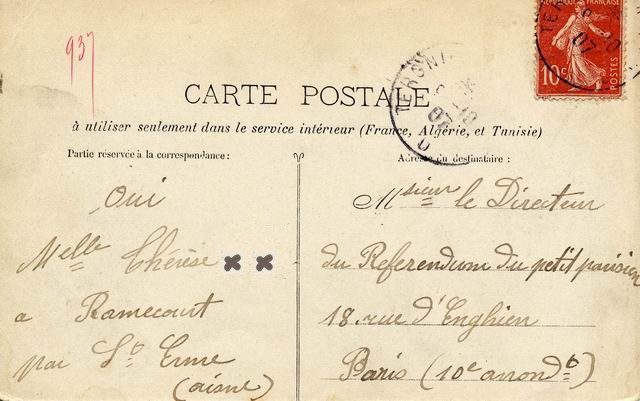 937
RÉPUBLIQUE FRANÇAISE
10c POSTES
TERGNI
07
CARTE POSTALE
à utiliser seulement dans le service intérieur (France, Algérie, et Tunisie)
Partie réservée à la correspondance:
Adresse du destinataire:
Oui
Melle Thérèse
a Ramecourt
par St Erme
(aisne)
Msieur le Directeur
du Referendum du petit parisien
18 rue d'Enghien
Paris (10e arrondt)